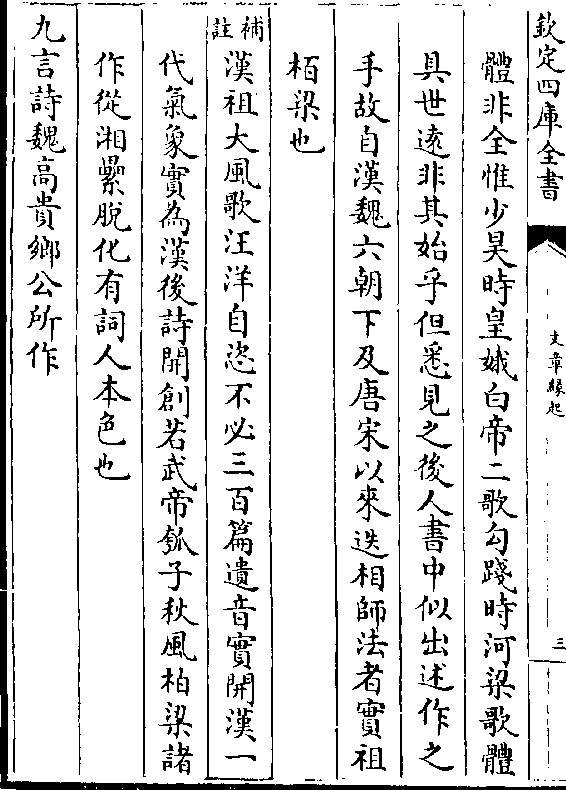 欽定四庫全書
文章緣起
三
體非全惟少昊時皇娥白帝二歌勾踐時河梁歌體
具世逺非其始乎但悉見之後人書中似出述作之
手故自漢魏六朝下及唐宋以來迭相師法者實祖
栢梁也
補註
漢祖大風歌汪洋自恣不必三百篇遺音實開漢一
代氣象實為漢後詩開創若武帝瓠子秋風柏梁諸
作從湘纍脫化有詞人本色也
九言詩魏高貴鄉公所作